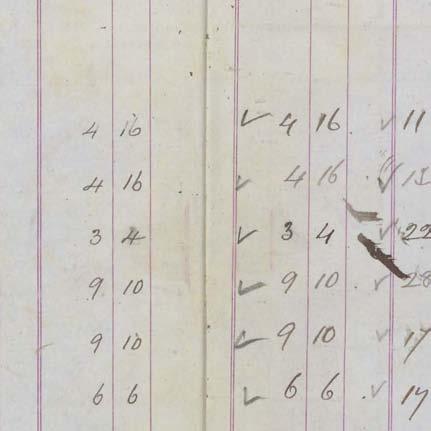 4 16 ✓ 4 16 ✓ 11
4 16 ✓ 4 16 ✓
3 4 ✓ 3 4 ✓ 22
9 10 ✓ 9 10 ✓ 28
9 10 ✓ 9 10 ✓ 17
6 6 ✓ 6 6 ✓